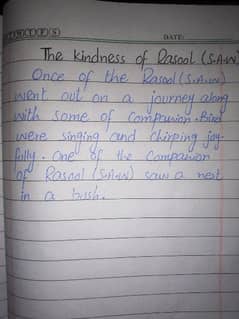 DATE:
The kindness of Rasool (S.A.W)
Once of the Rasool (S.A.W)
went out on a journey along
with some of Companion. Bird
were singing and chirping joy-
fully. One of the Companion
of Rasool (S.A.W) saw a nest
in a bush.